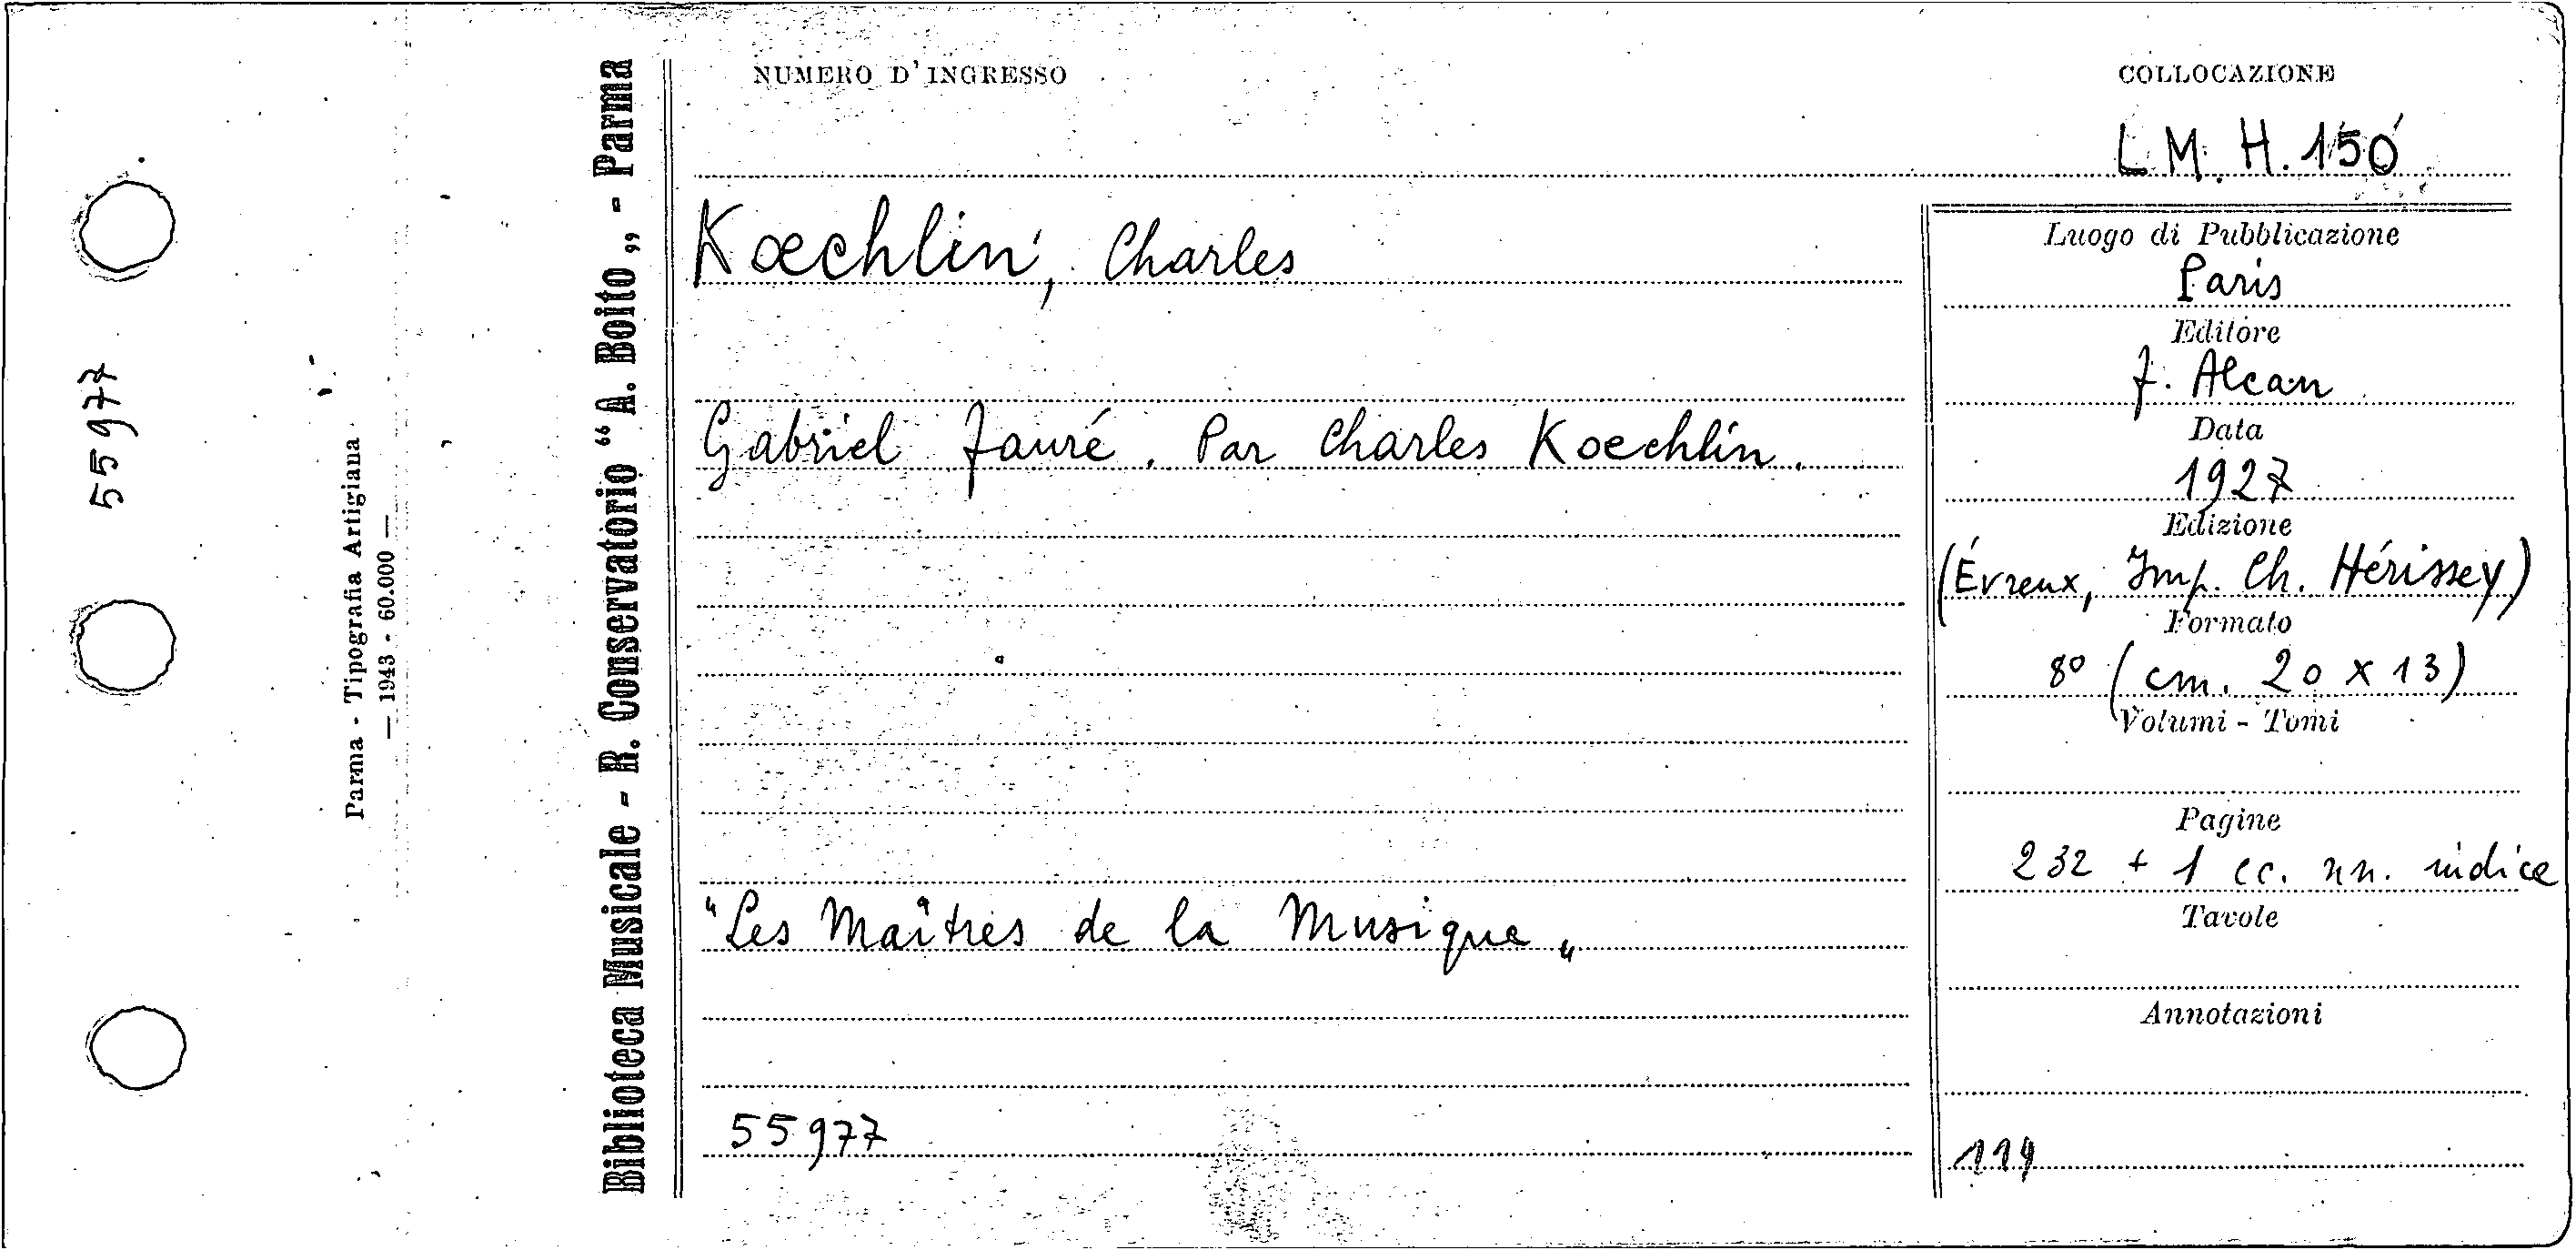 55977
Parma - Tipografia Artigiana
— 1943 - 60.000 —
Biblioteca Musicale - R. Conservatorio “A. Boito„ - Parma
NUMERO D'INGRESSO
COLLOCAZIONE
L M. H. 150
Kœchlin, Charles
Gabriel Fauré. Par Charles Koechlin.
"Les Maîtres de la Musique„
55977
Luogo di Pubblicazione
Paris
Editore
F. Alcan
Data
1927
Edizione
(Évreux, Imp. Ch. Hérissey)
Formato
8º (cm. 20 x 13)
Volumi - Tomi
Pagine
232 + 1 cc. nn. indice
Tavole
Annotazioni